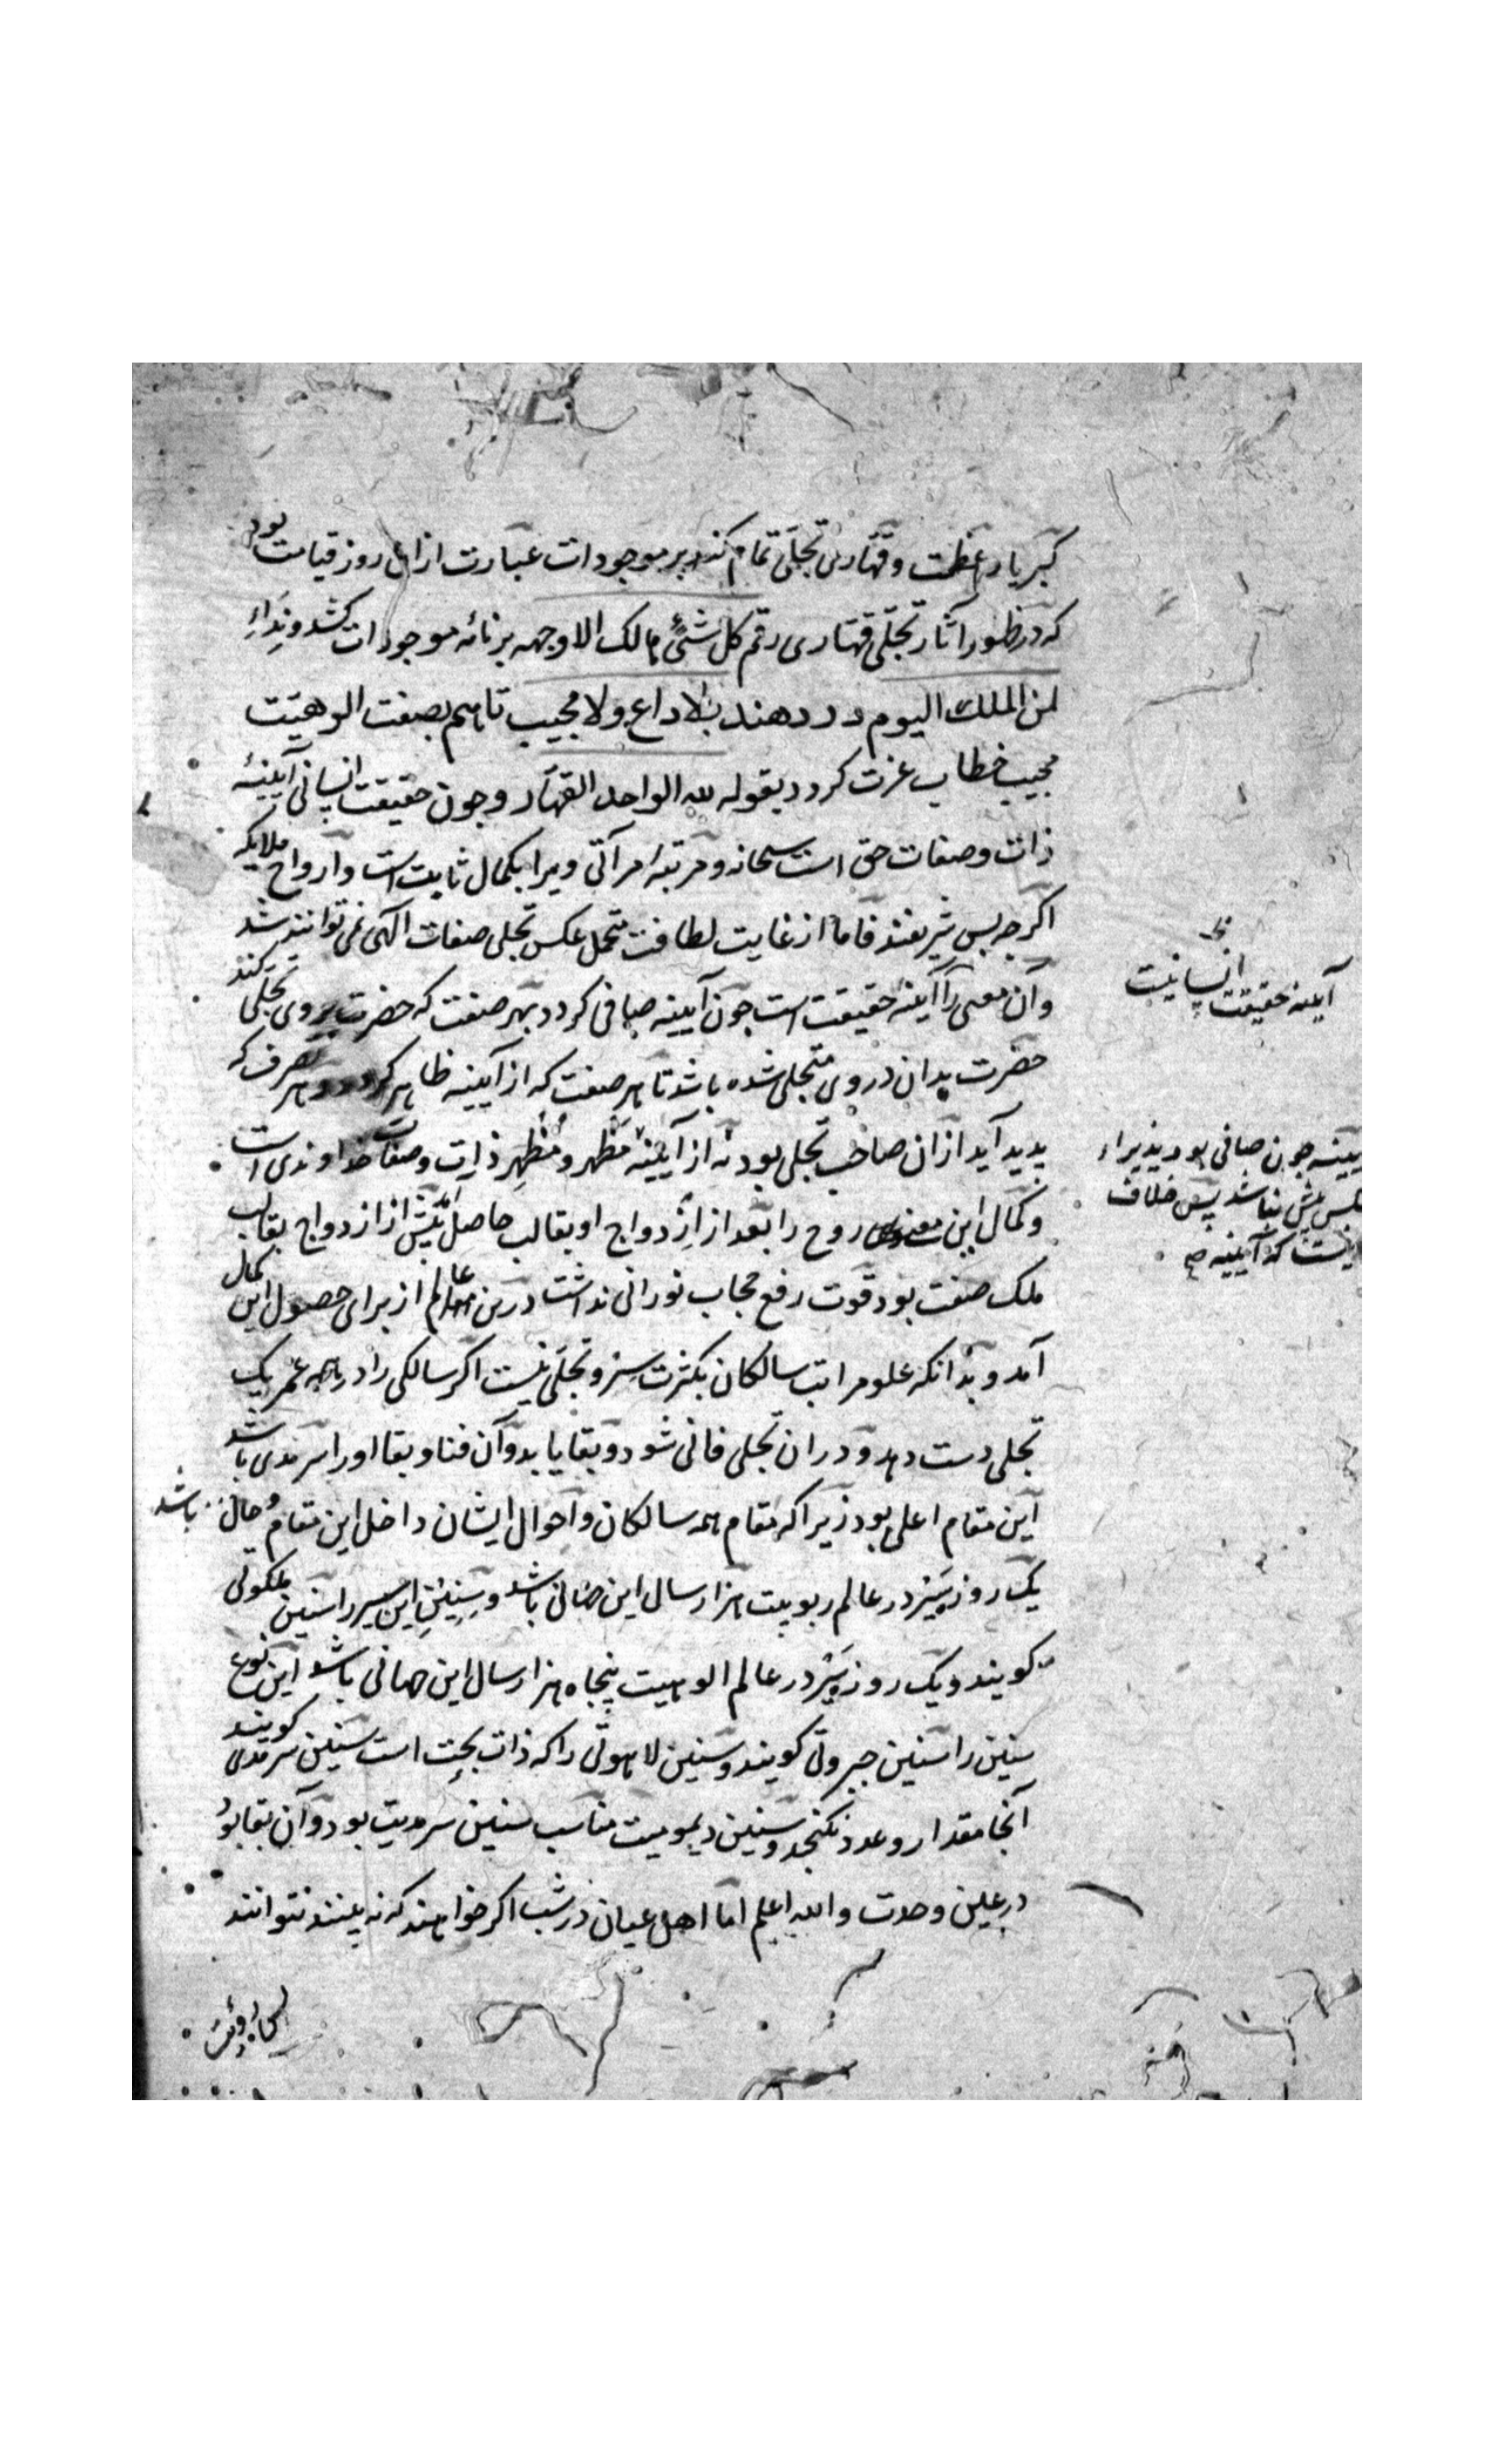 کبریا و عظمت و قهاری تجلی تمام کند بر موجودات عبارت ازان روز قیامت بود
که در ظهور آثار تجلی قهاری رقم کل شئ هالک الا وجهه بر نامه موجودات کشد و ندآءِ
لمن الملک الیوم در دهند بلا داع ولا مجیب تا هم بصفت الوهیت
مجیب خطاب عزت کردد بقوله لله الواحد القهار و چون حقیقت انسانی آیینهٔ
ذات و صفات حق است سبحانه و مرتبهٔ مرآتی ویرا بکمال ثابت است و ارواح ملایکه
اکرچه بس شریفند فاما از غایت لطافت متحمل عکس تجلی صفات الهی نمی توانند شد
و آن معنی را آیینهٔ حقیقت است چون آیینه صافی کردد بهر صفت که حضرت بروی تجلی کند
حضرت بدان در وی متجلی شده باشد تا هر صفت که از آیینه ظاهر کردد و هر تصرف که
پدید آید ازان صاحب تجلی بود نه از آیینه مَظهر و مُظهِر ذات و صفات خداوندی است
و کمال این معنی روح را بعد از ازدواج او بقالب حاصل پیش از ازدواج بقالب
ملک صفت بود قوت رفع حجاب نورانی نداشت درین عالم از برای حصول این کمال
آمد و بدانکه علو مراتب سالکان بکثرت سیر و تجلی نیست اکر سالکی را در همه عمر یک
تجلی دست دهد و دران تجلی فانی شود و بقا یابد و آن فنا و بقا او را سرمدی باشد
این مقام اعلی بود زیراکه مقام همه سالکان و احوال ایشان داخل این مقام و حال باشد
یک روز سیر در عالم ربوبیت هزار سال این جهانی باشد و سنین این سیر را سنین ملکوتی
کویند و یک روز سیر در عالم الوهیت پنجاه هزار سال این جهانی باشد این نوع
سنین را سنین جبروتی کویند و سنین لاهوتی را که ذات بحت است سنین سرمدی کویند
آنجا مقدار و عدد نکنجد و سنین دیمومیت مناسب سنین سرمدیت بود و آن بقا بود
در عین وحدت والله اعلم اما اهل عیان در شب اکر خواهند که نه بینند نتوانند
آیینه حقیقت انسانیت
یینه چون صافی بود پذیراء
عکس پیش نباشد پس خلاف
نیست که آیینه صح